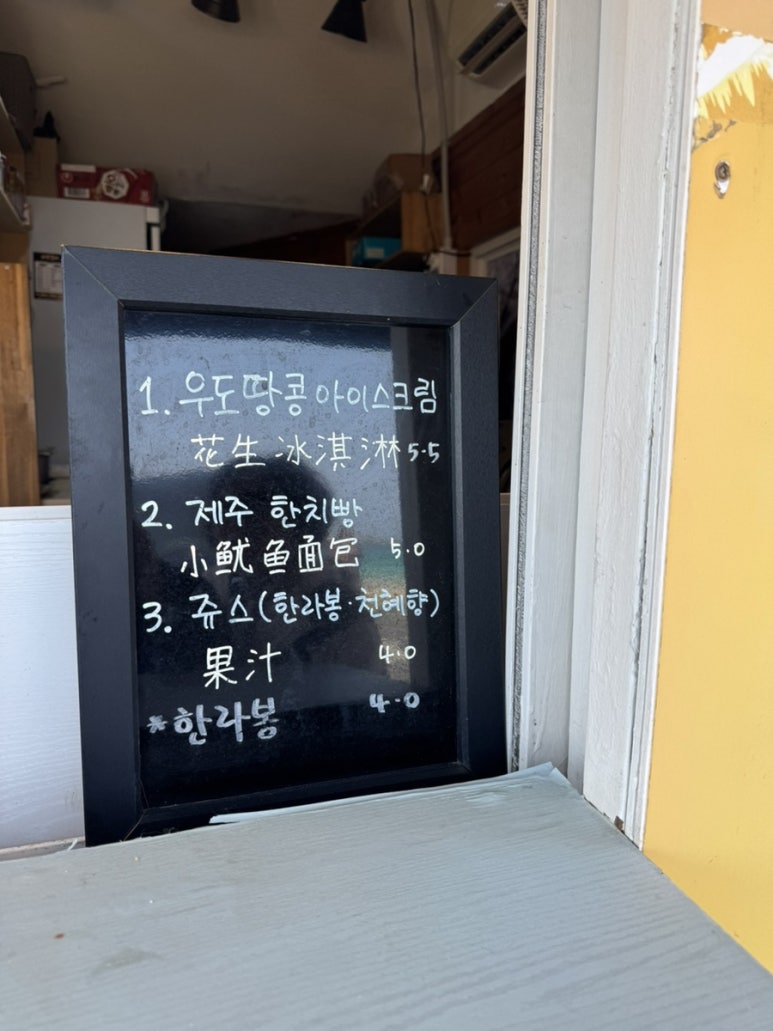 1. 우도땅콩아이스크림
花生冰淇淋 5.5
2. 제주 한치빵
小鱿鱼面包 5.0
3. 쥬스(한라봉·천혜향)
果汁 4.0
*한라봉 4.0